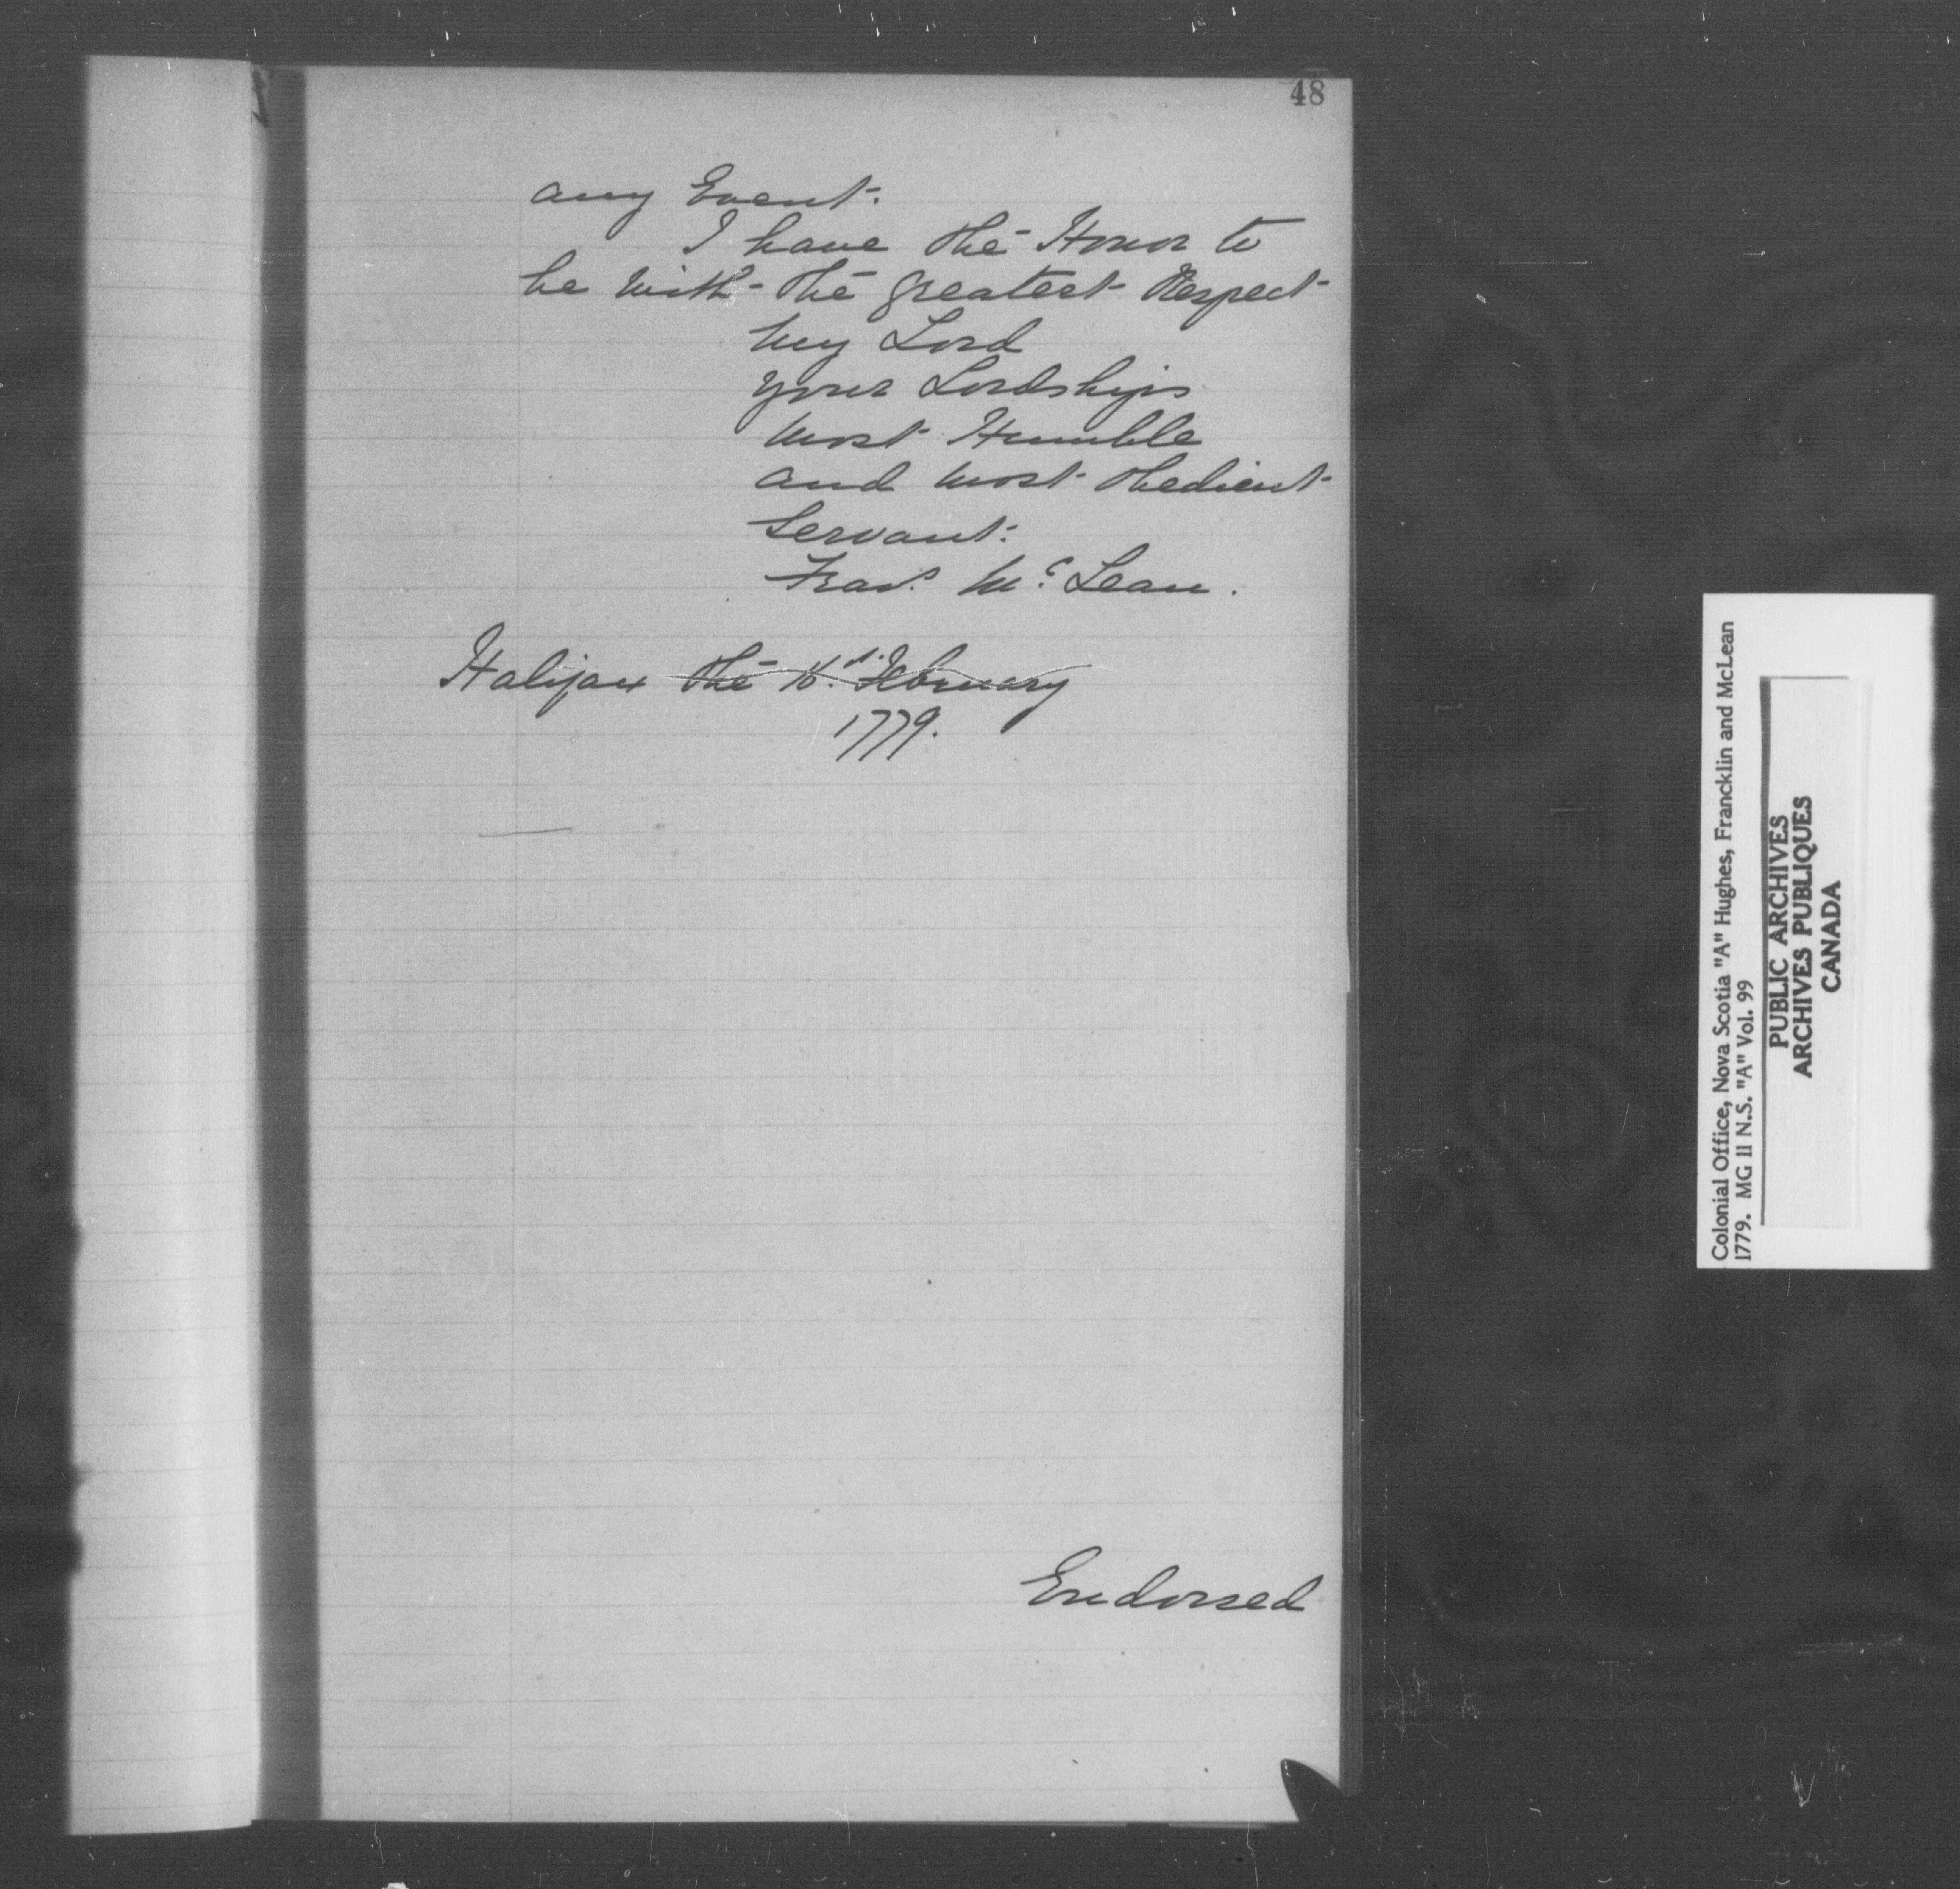 48
any Event.
I have the Honor to
be with the greatest Respect
My Lord
your Lordships
most Humble
and most obedient
Servant.
Fras. Mc. Lean.
Halifax the February
1779.
Endorsed
Colonial Office, Nova Scotia "A" Hughes, Francklin and McLean
1779. MG 11 N.S. "A" Vol. 99
PUBLIC ARCHIVES
ARCHIVES PUBLIQUES
CANADA